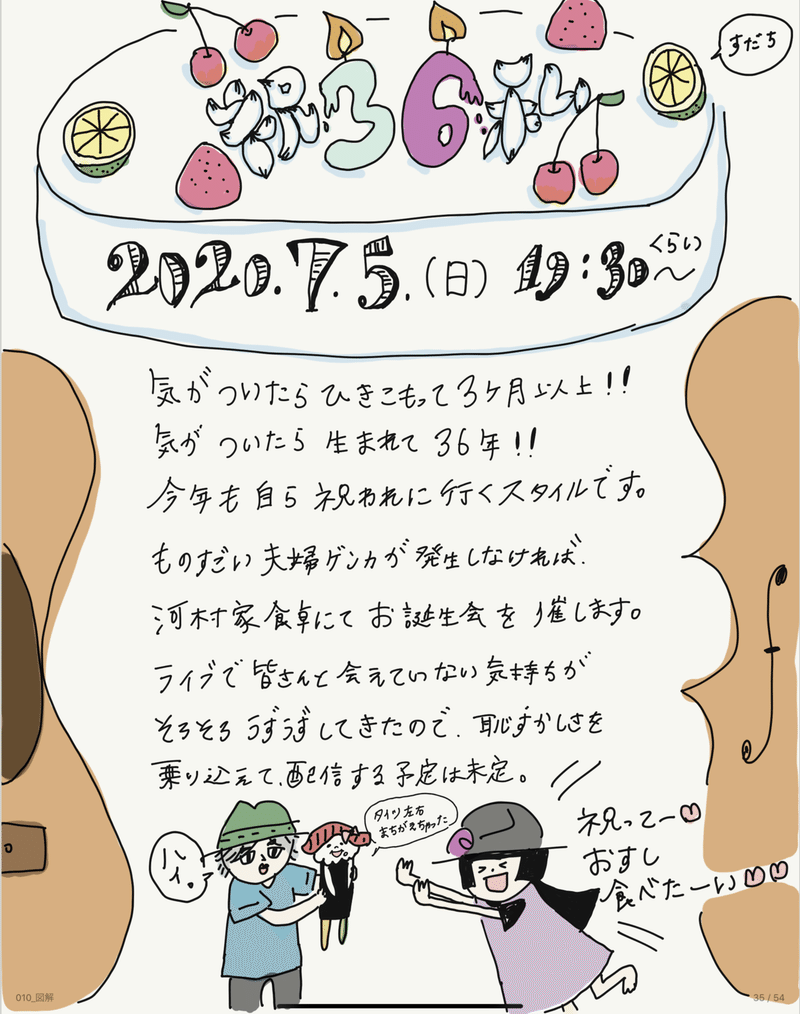 すだち
祝36祝
2020.7.5.(日) 19:30〜くらい
気がついたらひきこもって3ヶ月以上!!
気がついたら生まれて36年!!
今年も自ら祝われに行くスタイルです。
ものすごい夫婦ゲンカが発生しなければ、
河村家食卓にてお誕生会を催します。
ライブで皆さんと会えていない気持ちが
そろそろうずうずしてきたので、恥ずかしさを
乗り込えて、配信する予定は未定。
ハイ。
タイツ左右
まちがえちゃった
祝ってー
おすし
食べたーい
010_図解
35 / 54